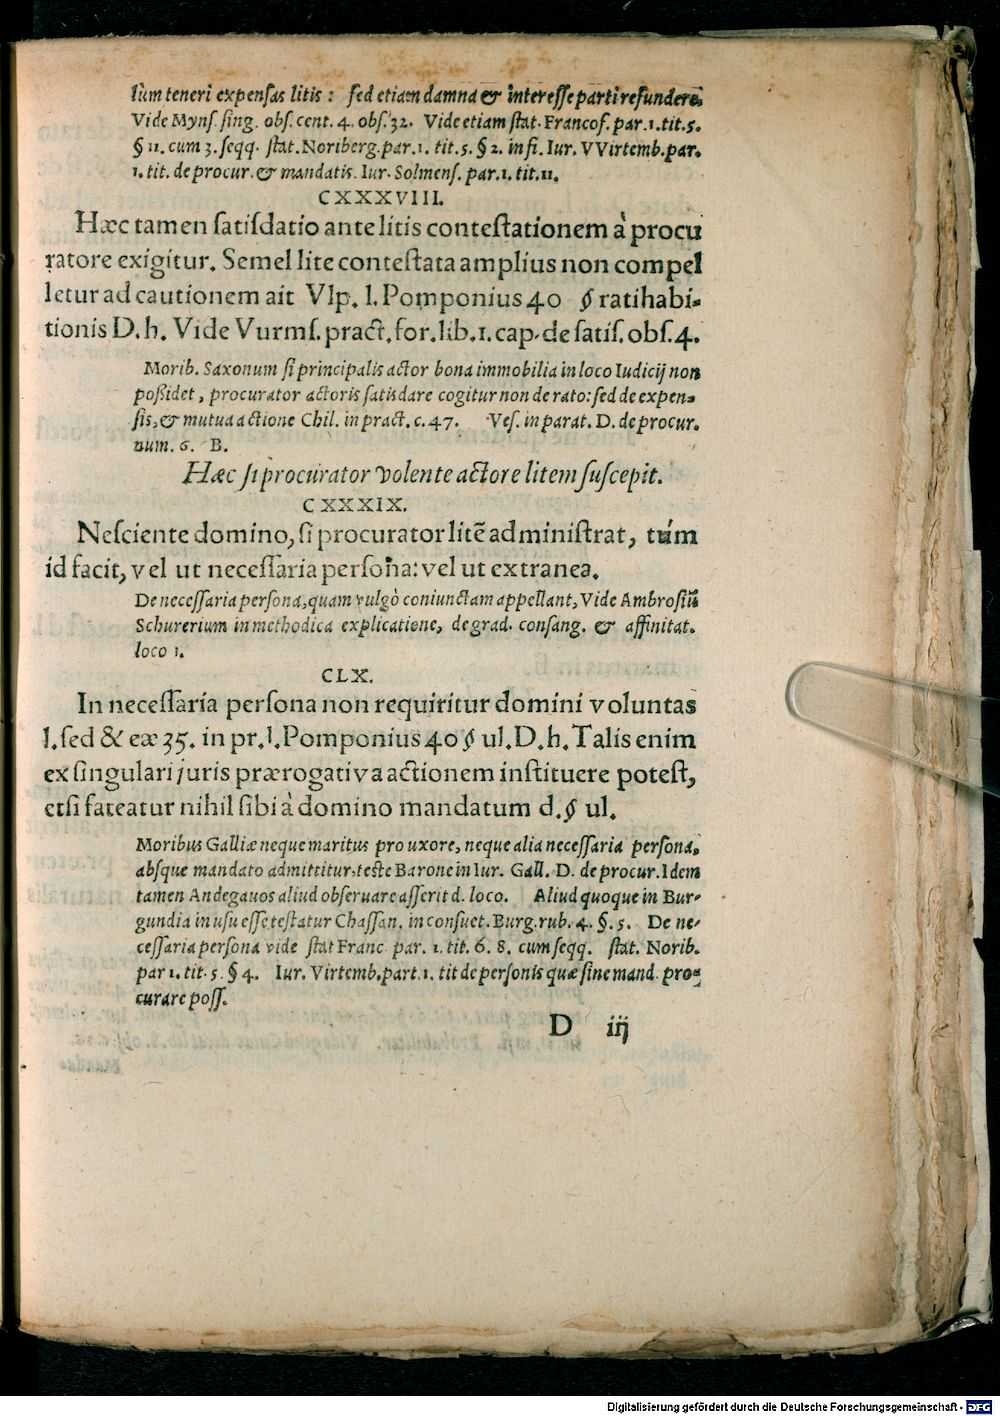 lùm teneri expensas litis: sed etiam damna & interesse parti refundere.
Vide Myns. sing. obs. cent. 4. obs. 32. Vide etiam stat. Francof. par. 1. tit. 5.
§ 11. cum 3. seqq. stat. Noriberg. par. 1. tit. 5. § 2. in fi. Iur. VVirtemb. par.
1. tit. de procur. & mandatis. Iur. Solmens. par. 1. tit. 11.
CXXXVIII.
Hæc tamen satisdatio ante litis contestationem à procu
ratore exigitur. Semel lite contestata amplius non compel
letur ad cautionem ait Vlp. l. Pomponius 40 § ratihabi-
tionis D. h. Vide Vurms. pract. for. lib. 1. cap. de satis. obs. 4.
Morib. Saxonum si principalis actor bona immobilia in loco Iudicij non
possidet, procurator actoris satisdare cogitur non de rato: sed de expen-
sis, & mutua actione Chil. in pract. c. 47. Ves. in parat. D. de procur.
num. 6. B.
Hæc si procurator volente actore litem suscepit.
CXXXIX.
Nesciente domino, si procurator litē administrat, tùm
id facit, vel ut necessaria persona: vel ut extranea.
De necessaria persona, quam vulgò coniunctam appellant, Vide Ambrosiū
Schurerium in methodica explicatione, de grad. consang. & affinitat.
loco 1.
CLX.
In necessaria persona non requiritur domini voluntas
l. sed & eæ 35. in pr. l. Pomponius 40 § ul. D. h. Talis enim
ex singulari juris prærogativa actionem instituere potest,
etsi fateatur nihil sibi à domino mandatum d. § ul.
Moribus Galliæ neque maritus pro uxore, neque alia necessaria persona,
absque mandato admittitur, teste Barone in Iur. Gall. D. de procur. Idem
tamen Andegavos aliud observare asserit d. loco. Aliud quoque in Bur-
gundia in usu esse testatur Chassan. in consuet. Burg. rub. 4. §. 5. De ne-
cessaria persona vide stat Franc par. 1. tit. 6. 8. cum seqq. stat. Norib.
par 1. tit. 5. § 4. Iur. Virtemb. part. 1. tit de personis quæ sine mand. pro-
curare poss.
D iij
Digitalisierung gefördert durch die Deutsche Forschungsgemeinschaft - DFG